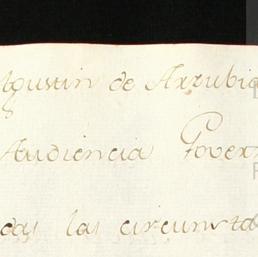 Agustin de Arzubia
Audiencia Gover
das las circunsta